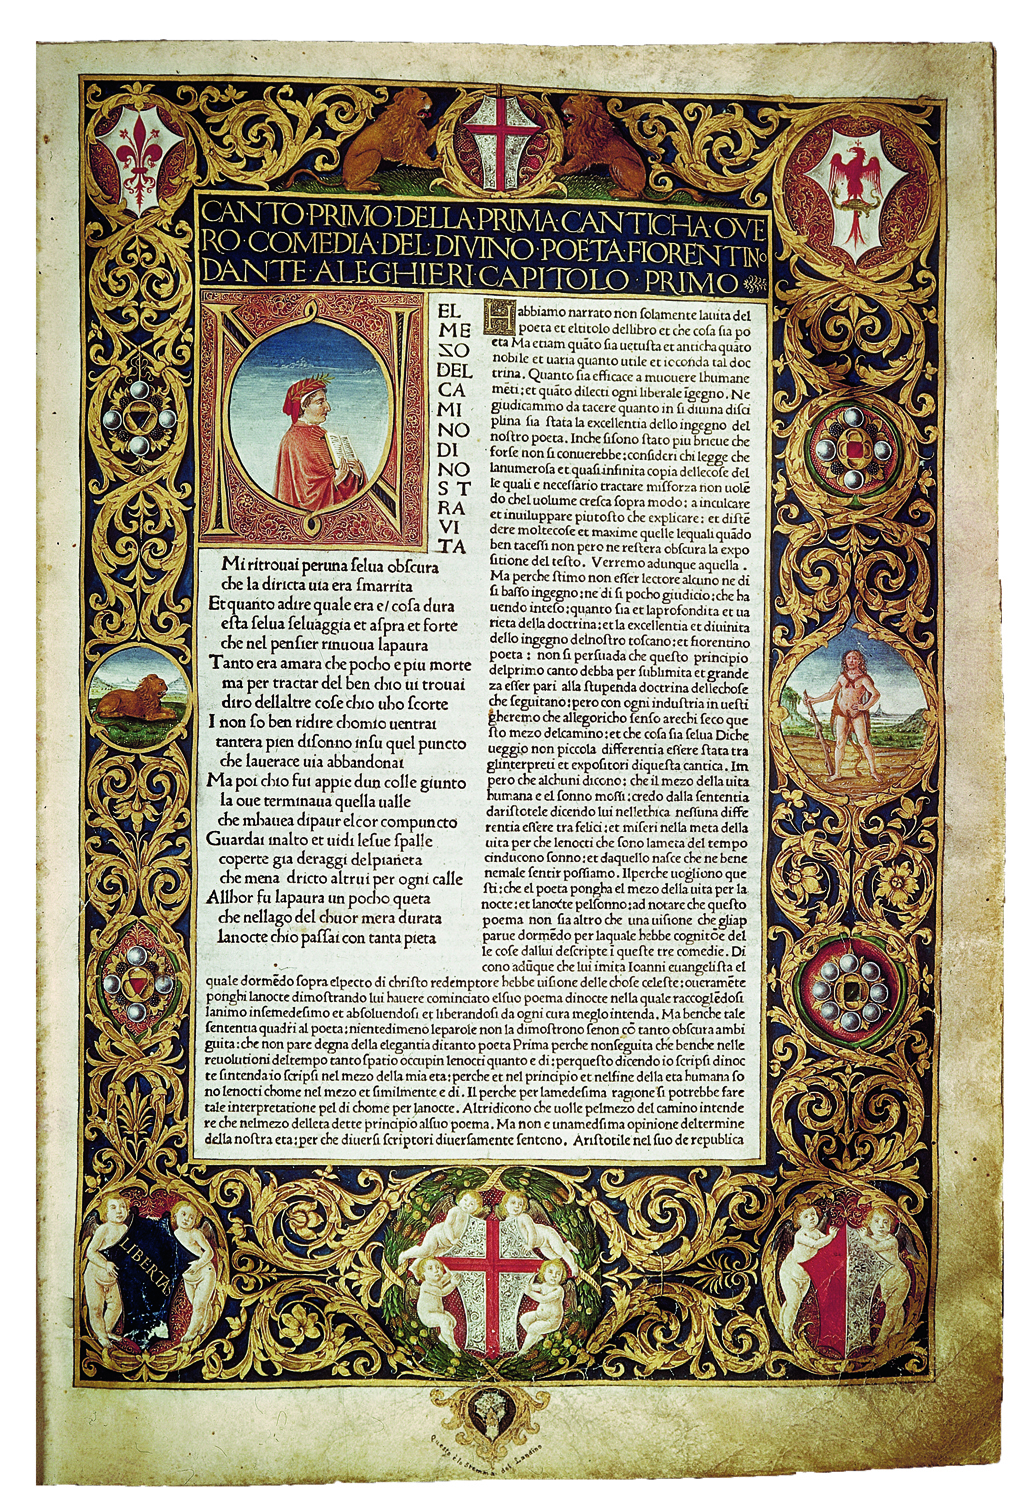 CANTO·PRIMO·DELLA·PRIMA·CANTICHA·OVE
RO·COMEDIA·DEL·DIVINO·POETA·FIORENTINo
DANTE·ALEGHIERI·CAPITOLO PRIMO
EL
ME
ZO
DEL
CA
MI
NO
DI
NO
S T
RA
VI
TA
Mi ritrouai peruna ſelua obſcura
che la diricta uia era ſmarrita
Et quanto adire quale era e/ coſa dura
eſta ſelua ſeluaggia et aſpra et forte
che nel penſier rinuoua lapaura
Tanto era amara che pocho e piu morte
ma per tractar del ben chio ui trouai
diro dellaltre coſe chio uho ſcorte
I non ſo ben ridire chomio uentrai
tantera pien diſonno inſu quel puncto
che lauerace uia abbandonai
Ma poi chio fui appie dun colle giunto
la oue terminaua quella ualle
che mhauea dipaur el cor compuncto
Guardai inalto et uidi leſue ſpalle
coperte gia deraggi delpianeta
che mena dricto altrui per ogni calle
Allhor fu lapaura un pocho queta
che nellago del chuor mera durata
lanocte chio paſſai con tanta pieta
Habbiamo narrato non ſolamente lauita del
poeta et eltitolo dellibro et che coſa ſia po
eta Ma etiam quāto ſia uetuſta et anticha quāto
nobile et uaria quanto utile et ioconda tal doc
trina. Quanto ſia efficace a muouere lhumane
mēti; et quāto dilecti ogni liberale īgegno. Ne
giudicammo da tacere quanto in ſi diuina diſci
plina ſia ſtata la excellentia dello ingegno del
noſtro poeta. Inche ſiſono ſtato piu brieue che
forſe non ſi conuerebbe; conſideri chi legge che
lanumeroſa et quaſi infinita copia dellecoſe del
le quali e neceſſario tractare miſforza non uolē
do chel uolume creſca ſopra modo; a inculcare
et inuiluppare piutoſto che explicare; et diſtē
dere moltecoſe et maxime quelle lequali quādo
ben taceſſi non pero ne reſtera obſcura la expo
ſitione del teſto. Verremo adunque aquella.
Ma perche ſtimo non eſſer lectore alcuno ne di
ſi baſſo ingegno; ne di ſi pocho giudicio; che ha
uendo inteſo; quanto ſia et laprofondita et ua
rieta della doctrina; et la excellentia et diuinita
dello ingegno delnoſtro toſcano; et fiorentino
poeta; non ſi perſuada che queſto principio
delprimo canto debba per ſublimita et grande
za eſſer pari alla ſtupenda doctrina dellechoſe
che ſeguitano; pero con ogni induſtria in ueſti
gheremo che allegoricho ſenſo arechi ſeco que
ſto mezo delcamino; et che coſa ſia ſelua Diche
ueggio non piccola differentia eſſere ſtata tra
glinterpreti et expoſitori diqueſta cantica. Im
pero che alchuni dicono; che il mezo della uita
humana e el ſonno moſſi; credo dalla ſententia
dariſtotele dicendo lui nellethica neſſuna diffe
rentia eſſere tra felici; et miſeri nella meta della
uita per che lenocti che ſono lameta del tempo
cinducono ſonno; et daquello naſce che ne bene
nemale ſentir poſſiamo. Ilperche uogliono que
ſti; che el poeta pongha el mezo della uita per la
nocte; et lanocte pelſonno; ad notare che queſto
poema non ſia altro che una uiſione che gliap
parue dormēdo per laquale hebbe cognitōe del
le coſe dallui deſcripte ī queſte tre comedie. Di
cono adūque che lui imita Ioanni euangeliſta el
quale dormēdo ſopra elpecto di chriſto redemptore hebbe uiſione delle choſe celeſte; oueramēte
ponghi lanocte dimoſtrando lui hauere cominciato elſuo poema dinocte nella quale raccoglēdoſi
lanimo inſemedeſimo et abſoluendoſi et liberandoſi da ogni cura meglo intenda. Ma benche tale
ſententia quadri al poeta; nientedimeno leparole non la dimoſtrono ſenon cō tanto obſcura ambi
guita; che non pare degna della elegantia ditanto poeta Prima perche nonſeguita che benche nelle
reuolutioni deltempo tanto ſpatio occupin lenocti quanto e di; perqueſto dicendo io ſcripſi dinoc
te ſintenda io ſcripſi nel mezo della mia eta; perche et nel principio et nelfine della eta humana ſo
no lenocti chome nel mezo et ſimilmente e di. Il perche per lamedeſima ragione ſi potrebbe fare
tale interpretatione pel di chome per lanocte. Altri dicono che uolle pelmezo del camino intende
re che nelmezo delleta dette principio alſuo poema. Ma non e unamedſima opinione deltermine
della noſtra eta; per che diuerſi ſcriptori diuerſamente ſentono. Ariſtotile nel ſuo de republica
LIBERTA
Questo è lo Stemma del Landino